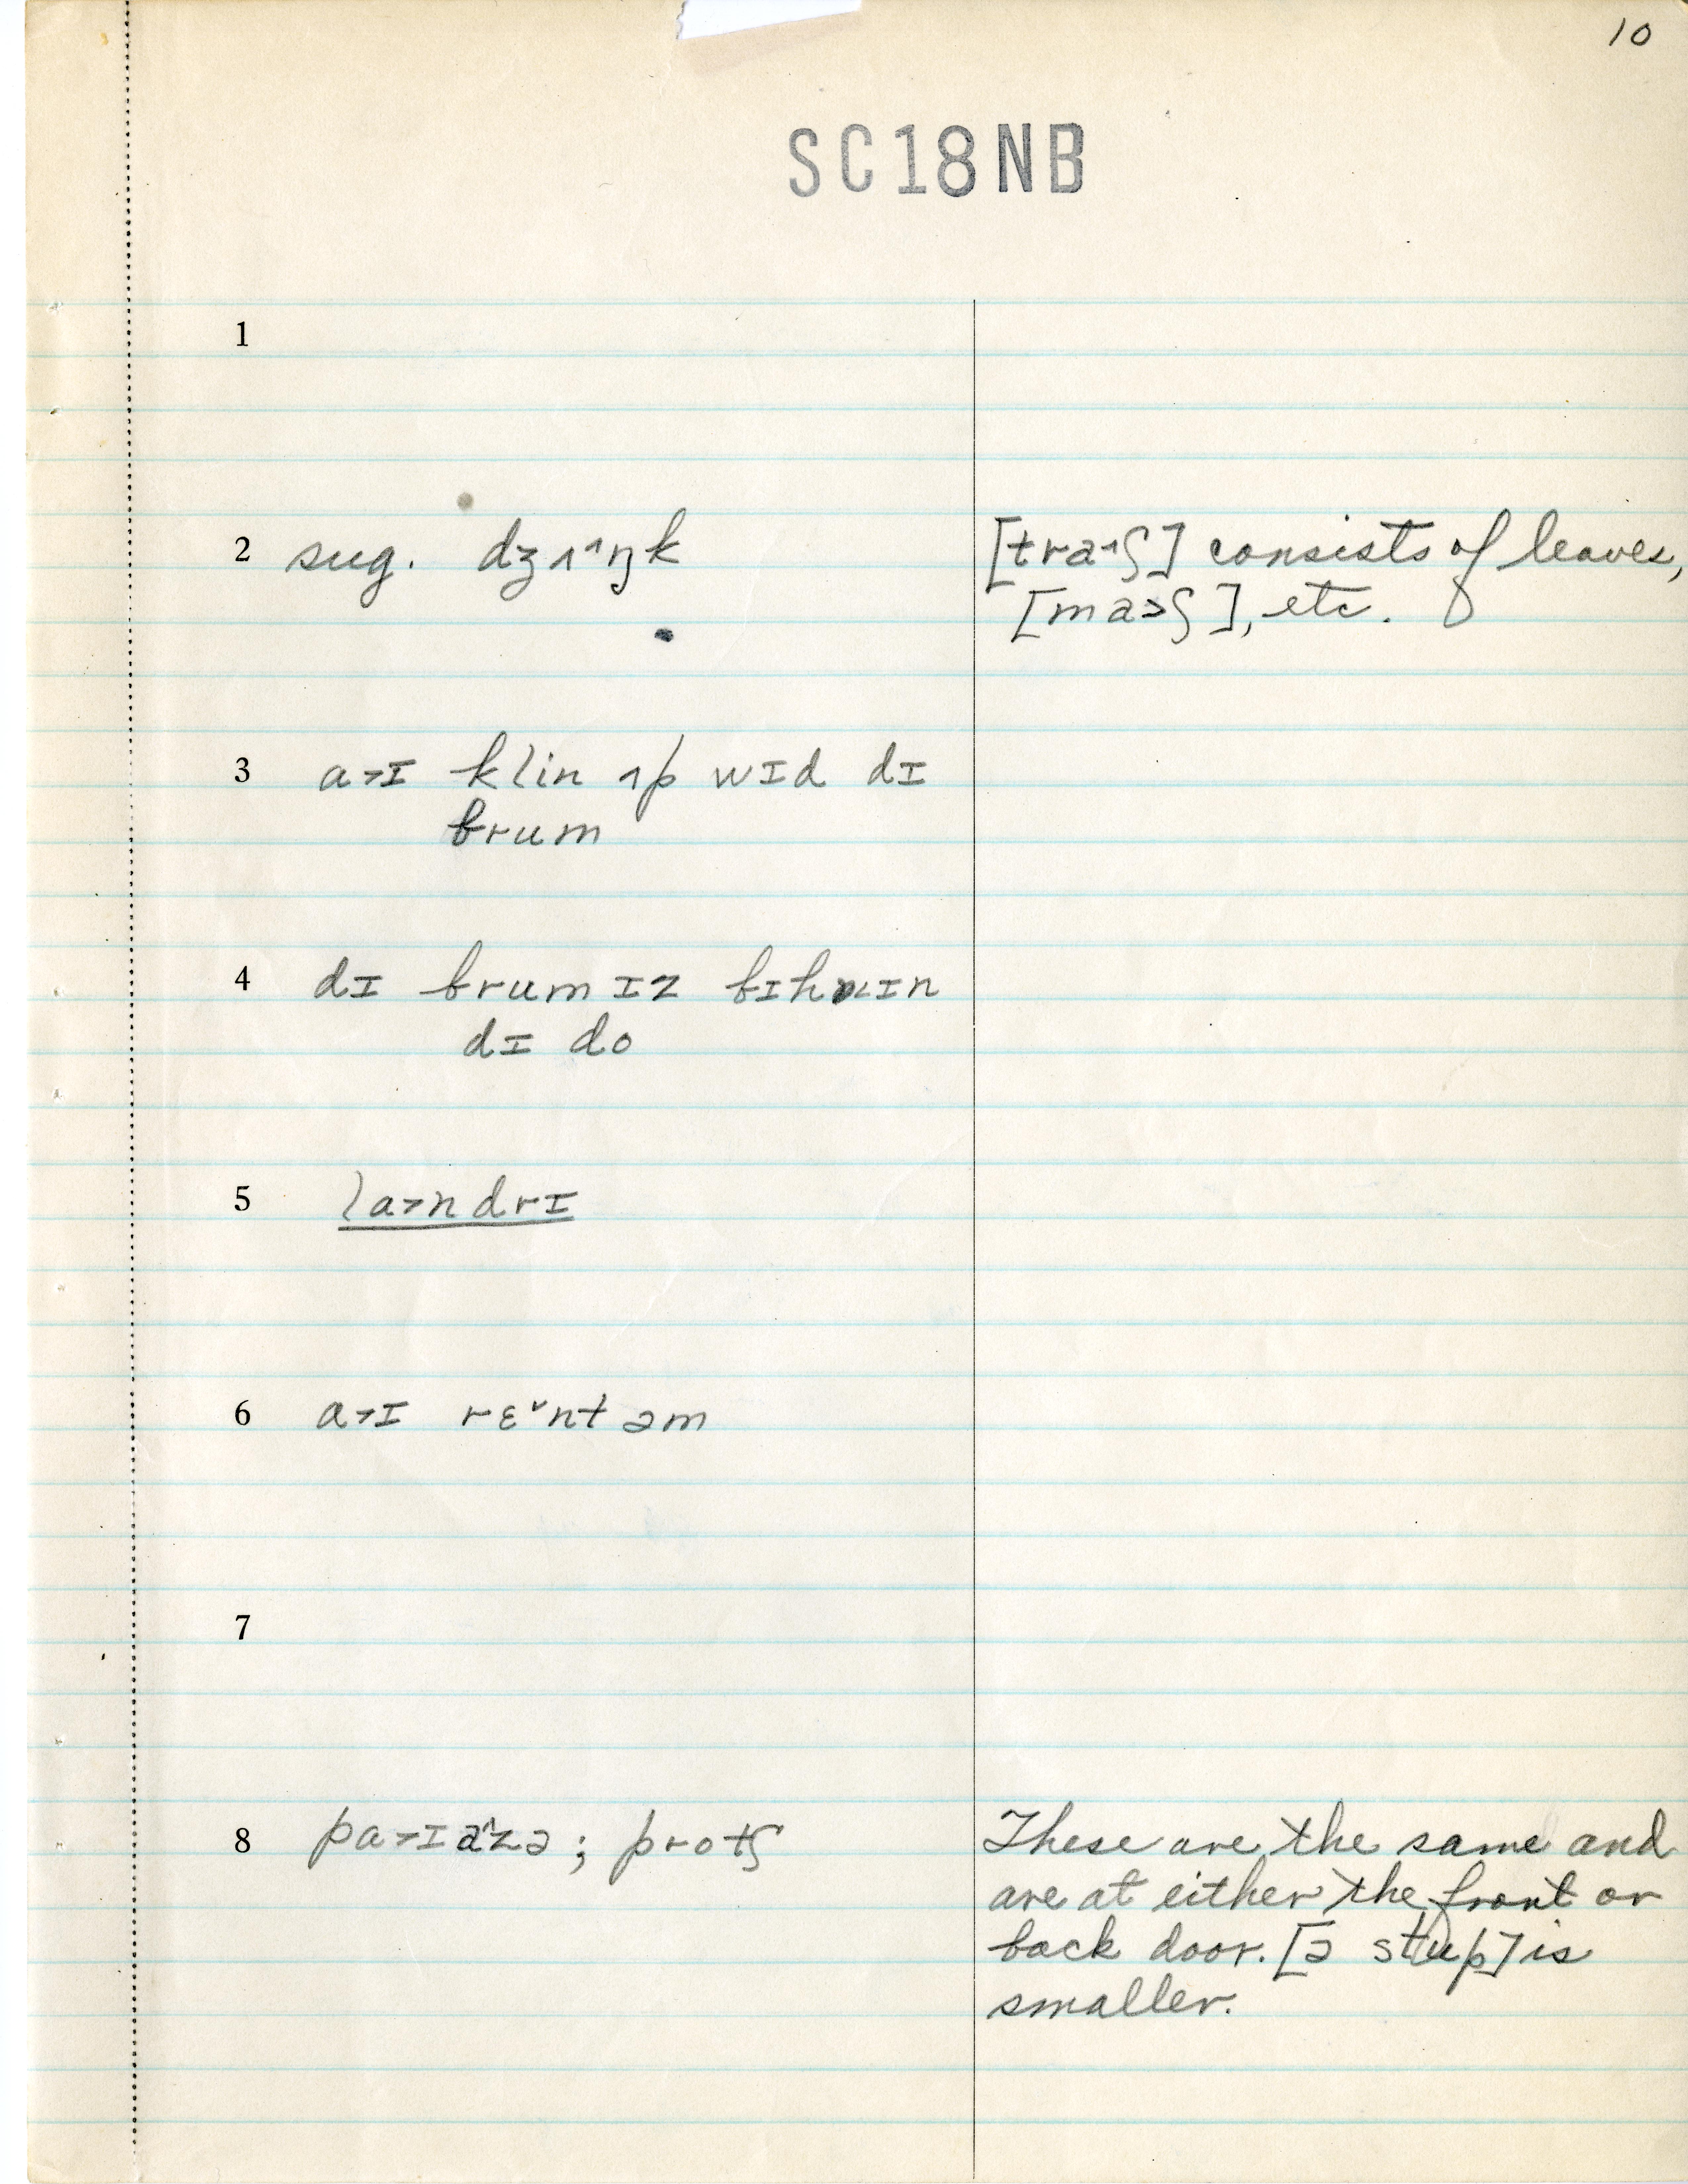 10
SC18NB
1
2 sug. dʒʌ˄ŋk [tra˄ʃ] consists of leaves,
[ma˃ʃ], etc.
3 a˃ɪ klin ʌp wɪd dɪ
brum
4 dɪ brum ɪz bɪhɪn
dɪ do
5 la˃ndrɪ
6 a˃ɪ rɛ˅nt əm
7
8 pa˃ɪa˄zə; protʃ These are the same and
are at either the front or
back door. [ə stup] is
smaller.